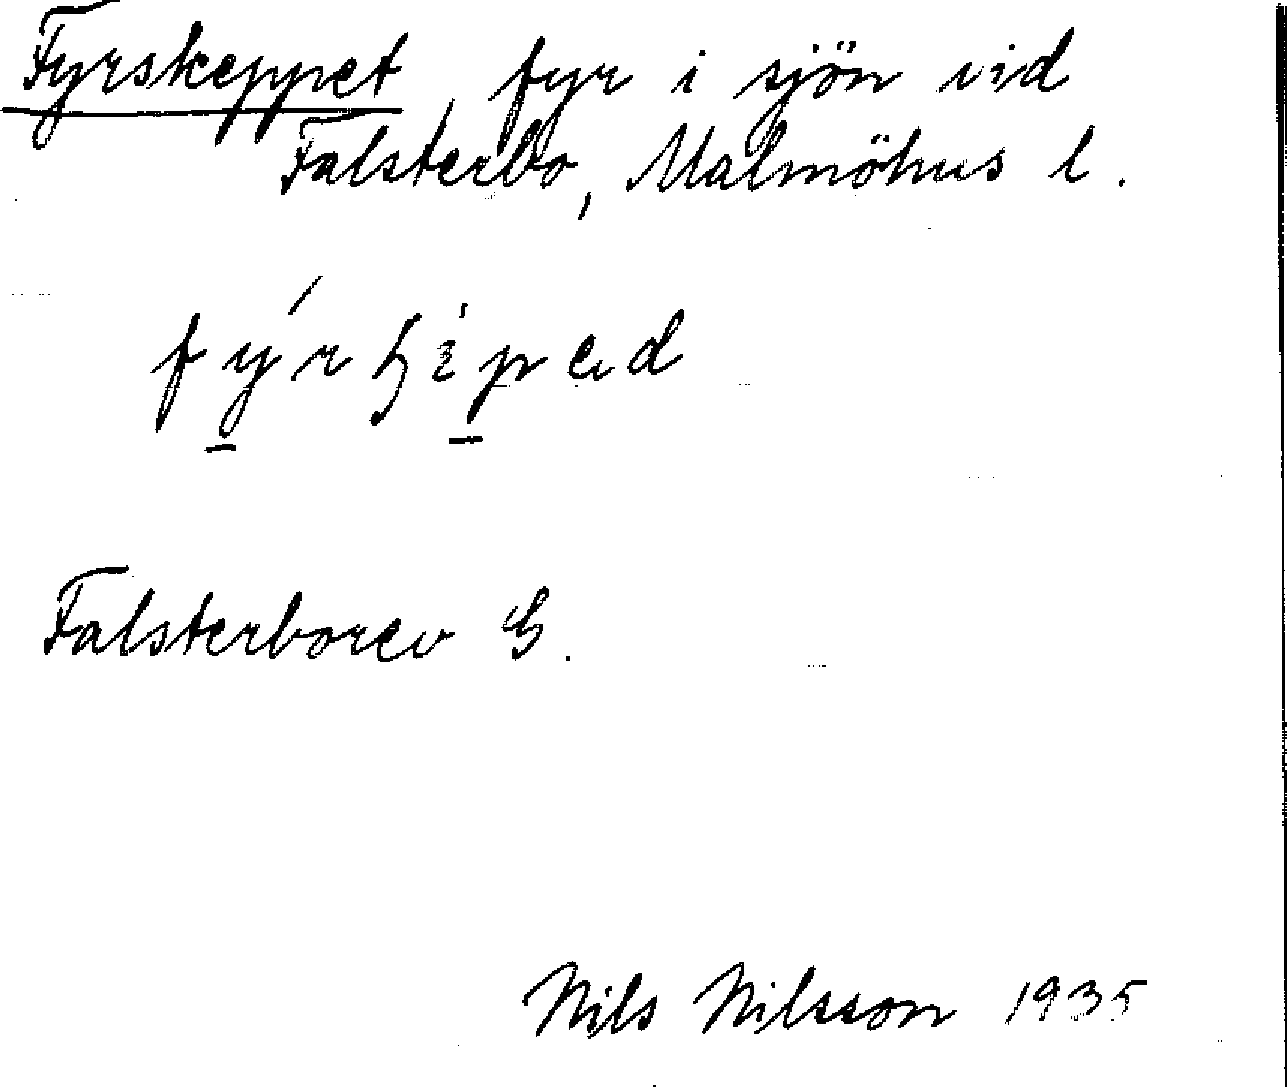 Fyrskeppet, fyr i sjön vid
Falsterbo, Malmöhus l.
Falsterborev G.
Nils Nilsson 1935